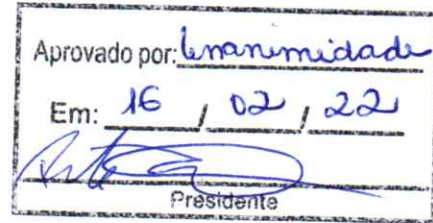 Aprovado por: Unanimidade
Em: 16 / 02 / 22
Presidente